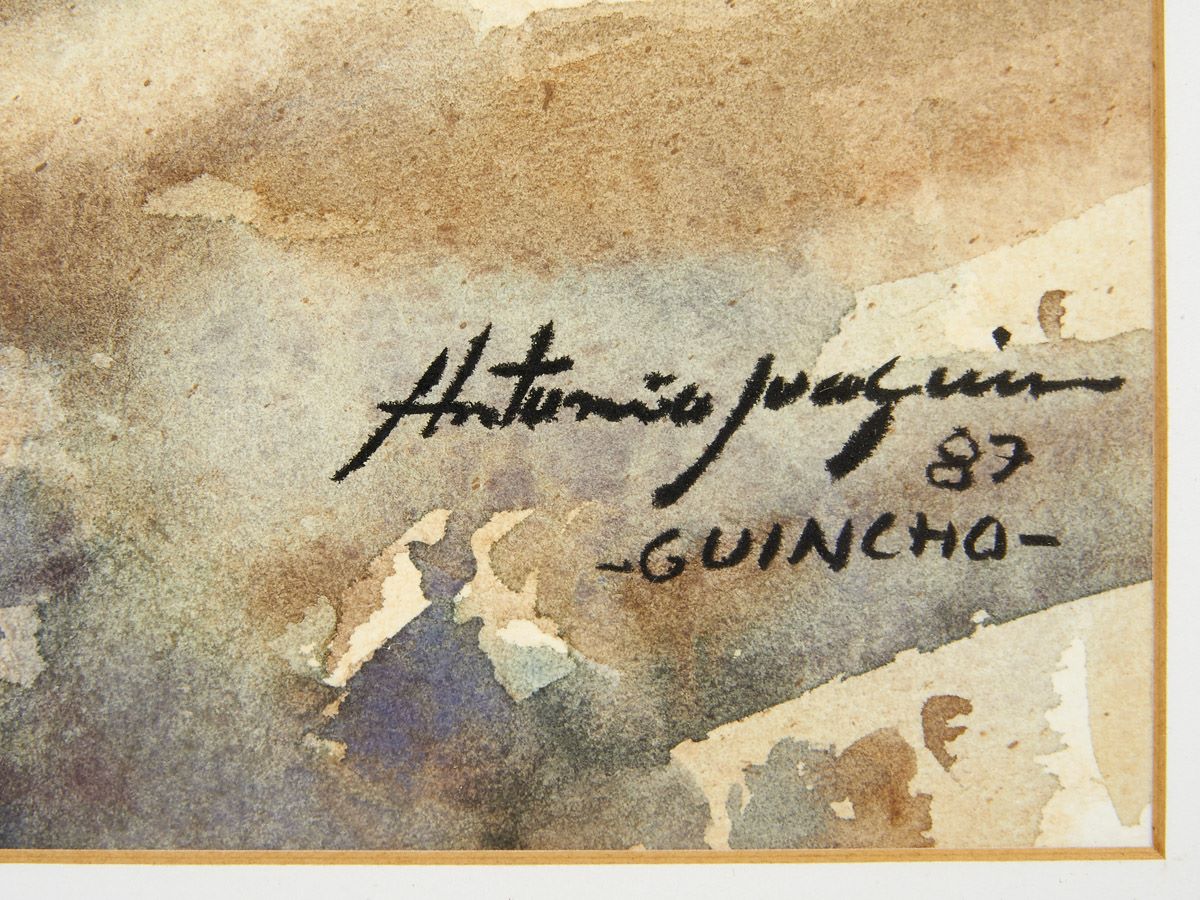 Antonio Joaquim
87
-GUINCHO-